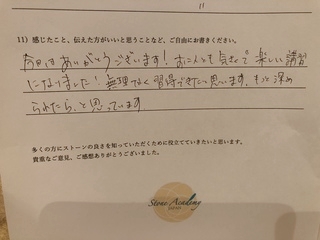 11
11）感じたこと、伝えた方がいいと思うことなど、ご自由にお書きください。
今日はありがとうございます！おにんとも気さくで楽しい講習
になりました！無理なく習得できたと思います。もっと深め
られたら、と思っています
多くの方にストーンの良さを知っていただくために役立てていきたいと思います。
貴重なご意見、ご感想ありがとうございました。
Stone Academy